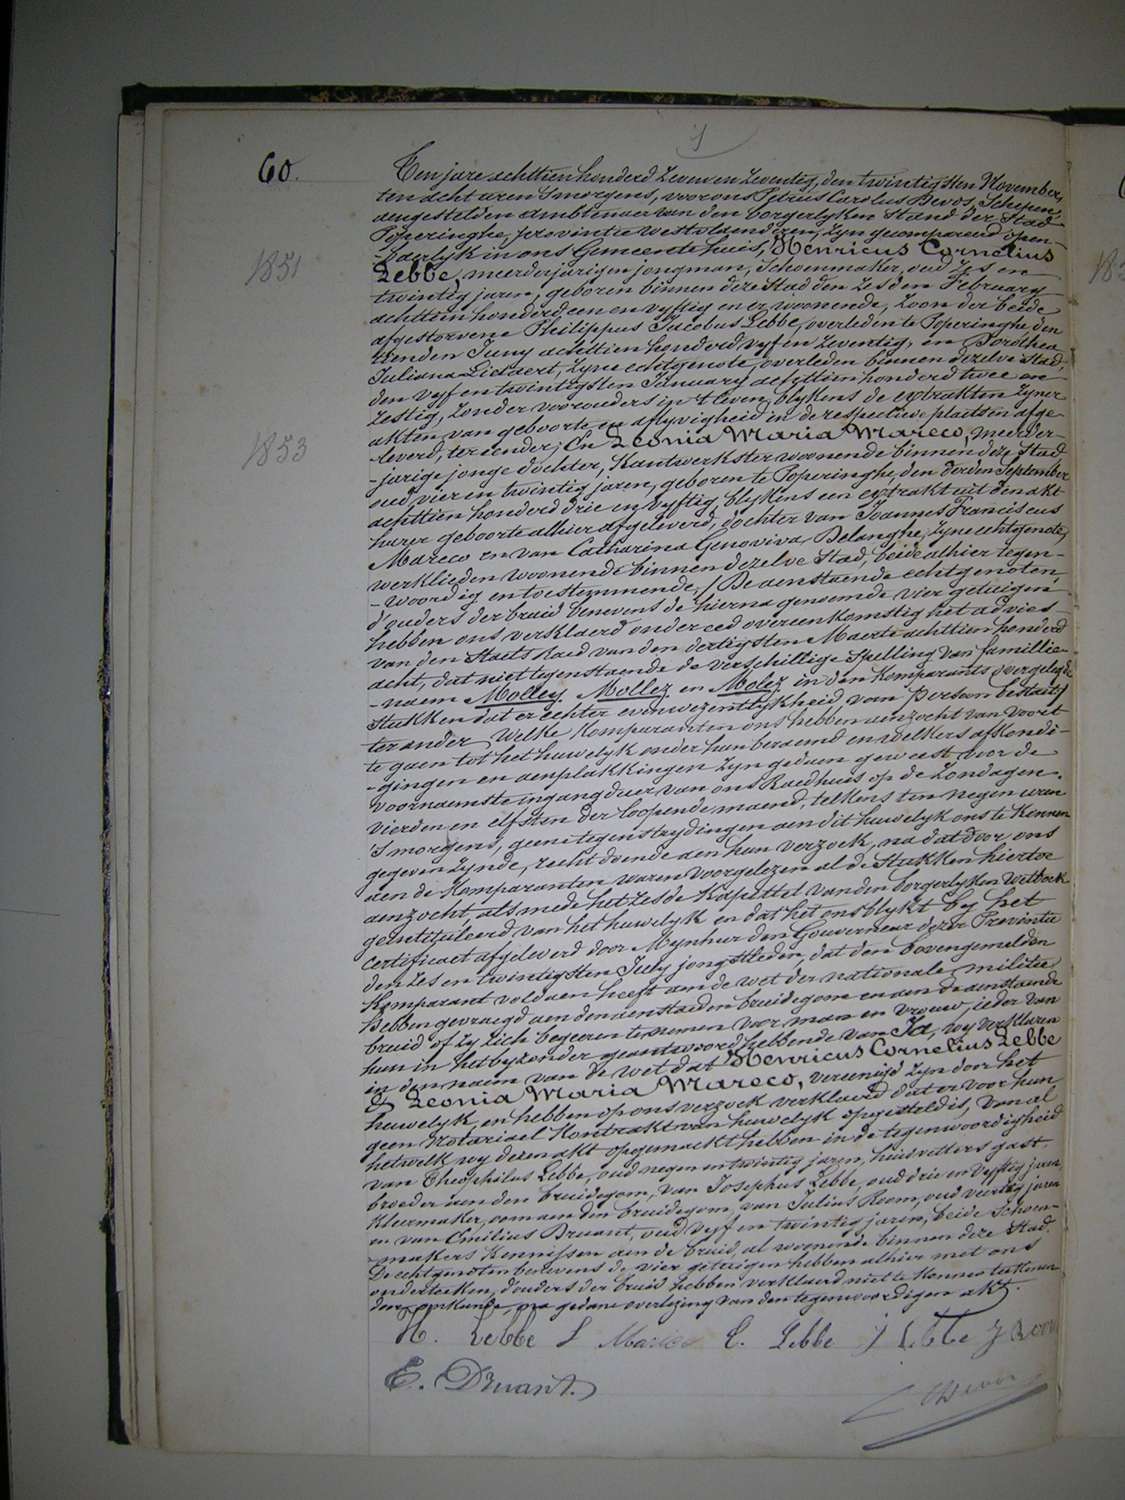 60.
Ten jare achttien honderd zeven en zeventig, den twintigsten November,
ten acht uren 'smorgens, voor ons Petrus Carolus Devos, Schepen,
aengestelden ambtenaer van den borgerlyken stand der Stad
Poperinghe, provintie westvlaenderen, zyn gecompareerd open-
-baerlyk in ons Gemeentehuis, Henricus Cornelius
1851
Lebbe, meerderjarigen jongman, Schoenmaker, oud zes en
twintig jaren, geboren binnen deze Stad den zesden February
achttien honderd een en vyftig en er woonende, zoon der beide
afgestorvene Philippus Jacobus Lebbe, overleden te Poperinghe, den
tienden Juny achttien honderd vyf en zeventig, en Dorothea
Juliana Liefaert, zyne echtgenote, overleden binnen dezelve Stad,
den vyf en twintigsten January achttien honderd twee en
zestig, zonder voorouders in 't leven, blykens de extrakten zyner
akten van geboorte en aflyvigheid in de respective plaetsen afge
1853
-leverd, ter eender; En Leonia Maria Mareco, meerder-
-jarige jonge dochter, Kantwerkster woonende binnen deze Stad
oud vier en twintig jaren, geboren te Poperinghe, den derden September
achttien honderd drie en vyftig blykens een extrakt uit den akt
harer geboorte alhier afgeleverd, dochter van Joannes Franciscus
Mareco en van Catharina Genoviva Delanghe, zyne echtgenote,
werklieden woonende binnen dezelve Stad, beide alhier tegen-
-woordig en toestemmende, / De aenstaende echtgenoten,
d'ouders der bruid benevens de hierna genoemde vier getuigen
hebben ons verklaerd onder eed overeenkomstig het advies
van den Staets Raed van den dertigsten Maerte achttien honderd
acht, dat niettegenstaende de verschillige Spelling van famillie-
-naem Molley Mollez en Molez in den Komparants voorgelegde
Stukken dat er echter evenwezentlykheid van Persoon bestaet /
ter ander, Welke Komparanten ons hebben aenzocht van voort
te gaen tot het huwelyk onder hun beraemd en welkers afkondi-
-gingen en aenplakkingen zyn gedaen geweest voor de
voornaemste ingangdeur van ons Raedhuis op de zondagen
vierden en elfsten der loopende maend, telkens ten negen uren
'Smorgens, geene tegenstrydingen aen dit huwelyk ons te kennen
gegeven zynde, recht doende aen hun verzoek, na dat door ons
aen de Komparanten waren voorgelezen al de Stukken hiertoe
aenzocht, alsmede het zesde Kapittel van den borgerlyken Wetboek
geïntituleerd van het huwelyk en dat het ons blykt by het
certificaet afgeleverd door Mynheer den Gouverneur dezer Provintie
den zes en twintigsten July jongstleden, dat den bovengemelden
Komparant voldaen heeft aen de wet der nationale militie
hebben gevraegd aen den aenstaenden bruidegom en aen de aenstaende
bruid of zy zich begeeren te nemen voor man en vrouw, ieder van
hun in het byzonder geantwoord hebbende van Ja, wy verklaren
in den naem van de wet dat Henricus Cornelius Lebbe
& Leonia Maria Mareco, vereenigd zyn door het
huwelyk, en hebben op ons verzoek verklaerd dat er voor hun
geen Notariael Kontrakt van huwelyk opgesteld is, van al
hetwelk wy dezen akt opgemaekt hebben in de tegenwoordigheid
van Theophilus Lebbe, oud negen en twintig jaren, huisvetters gast
broeder aen den bruidegom, van Josephus Lebbe, oud drie en vyftig jaren
Kleermaker, oom aen den bruidegom, van Julius Room, oud veertig jaren
en van Emilius Druant, oud vyf en twintig jaren, beide Schoen-
-makers Kennissen aen de bruid, al woonende binnen deze Stad.
De echtgenoten benevens de vier getuigen hebben alhier met ons
onderteeken, d'ouders der bruid hebben verklaerd niet te konnen teekenen
door onkunde, na gedane overlezing van den tegenwoordigen akt.
H. Lebbe L Mareco C. Lebbe J Lebbe J Room
E. Druant.
C Devos